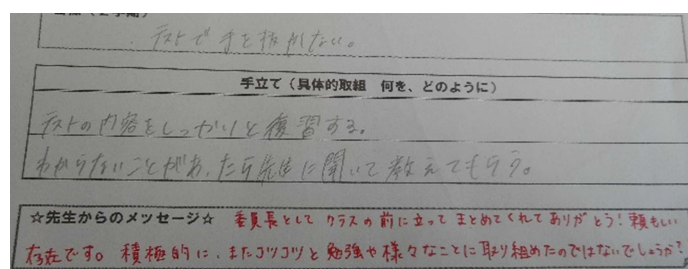 テストで手を抜かない。
手立て（具体的取組　何を、どのように）
テストの内容をしっかりと復習する。
わからないことがあったら先生に聞いて教えてもらう。
☆先生からのメッセージ☆ 委員長として クラスの前に立って まとめてくれて ありがとう！頼もしい
存在です。積極的に、またコツコツと 勉強や様々なことに取り組めたのではないでしょうか？